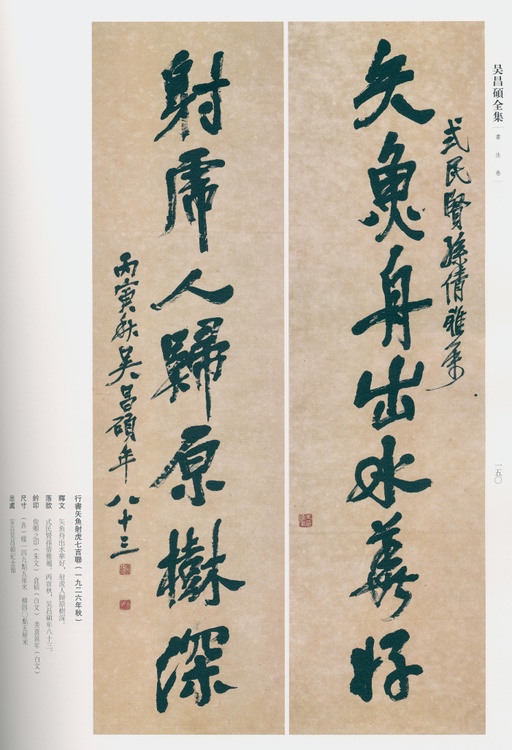 吴昌碩全集
書法卷
一五〇
式民賢孫倩雅屬
矢魚舟出水華好
射虎人歸原樹深
丙寅秋吳昌碩年八十三
行書矢魚射虎七言聯(一九二六年秋)
釋文 矢魚舟出水華好,射虎人歸原樹深。
落款 式民賢孫倩雅屬。丙寅秋,吳昌碩年八十三。
鈐印 俊卿之印(朱文) 倉碩(白文) 美意延年(白文)
尺寸 (各)縱一四九點五厘米 橫四〇點五厘米
出處 安吉吳昌碩紀念館